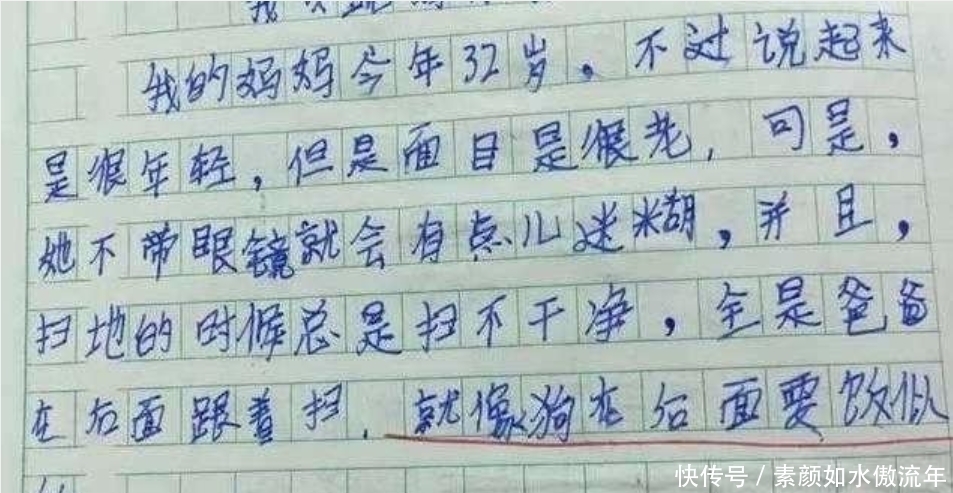 我的妈妈今年32岁。不过说起来
是很年轻，但是面目是很老，可是，
她不带眼镜就会有点儿迷糊，并且，
扫地的时候总是扫不干净，全是爸爸
在后面跟着扫．就像狗在后面要饭似
快传号／素颜如水傲流年